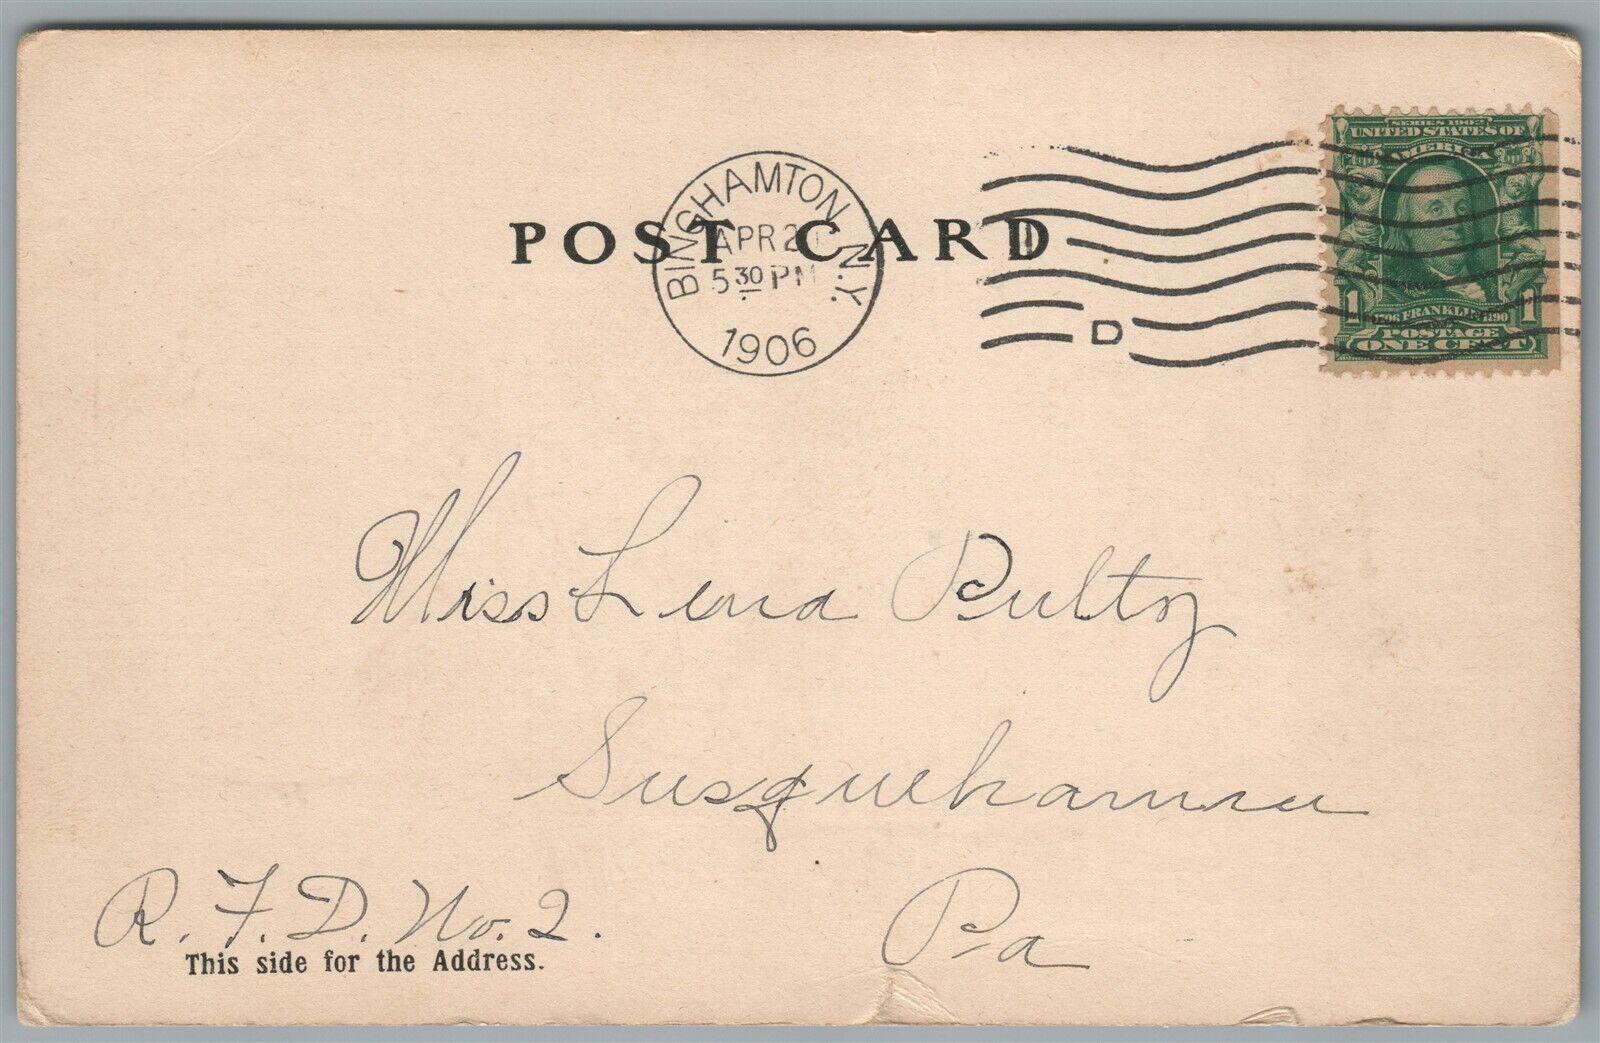 POST CARD
BINGHAMTON, N.Y.
APR
5 30 PM
1906
D
SERIES 1902
UNITED STATES OF
AMERICA
1 FRANKLIN 1
POSTAGE
ONE CENT
Miss Lena Pultz
Susquehanna
R. F. D. No. 2. Pa
This side for the Address.